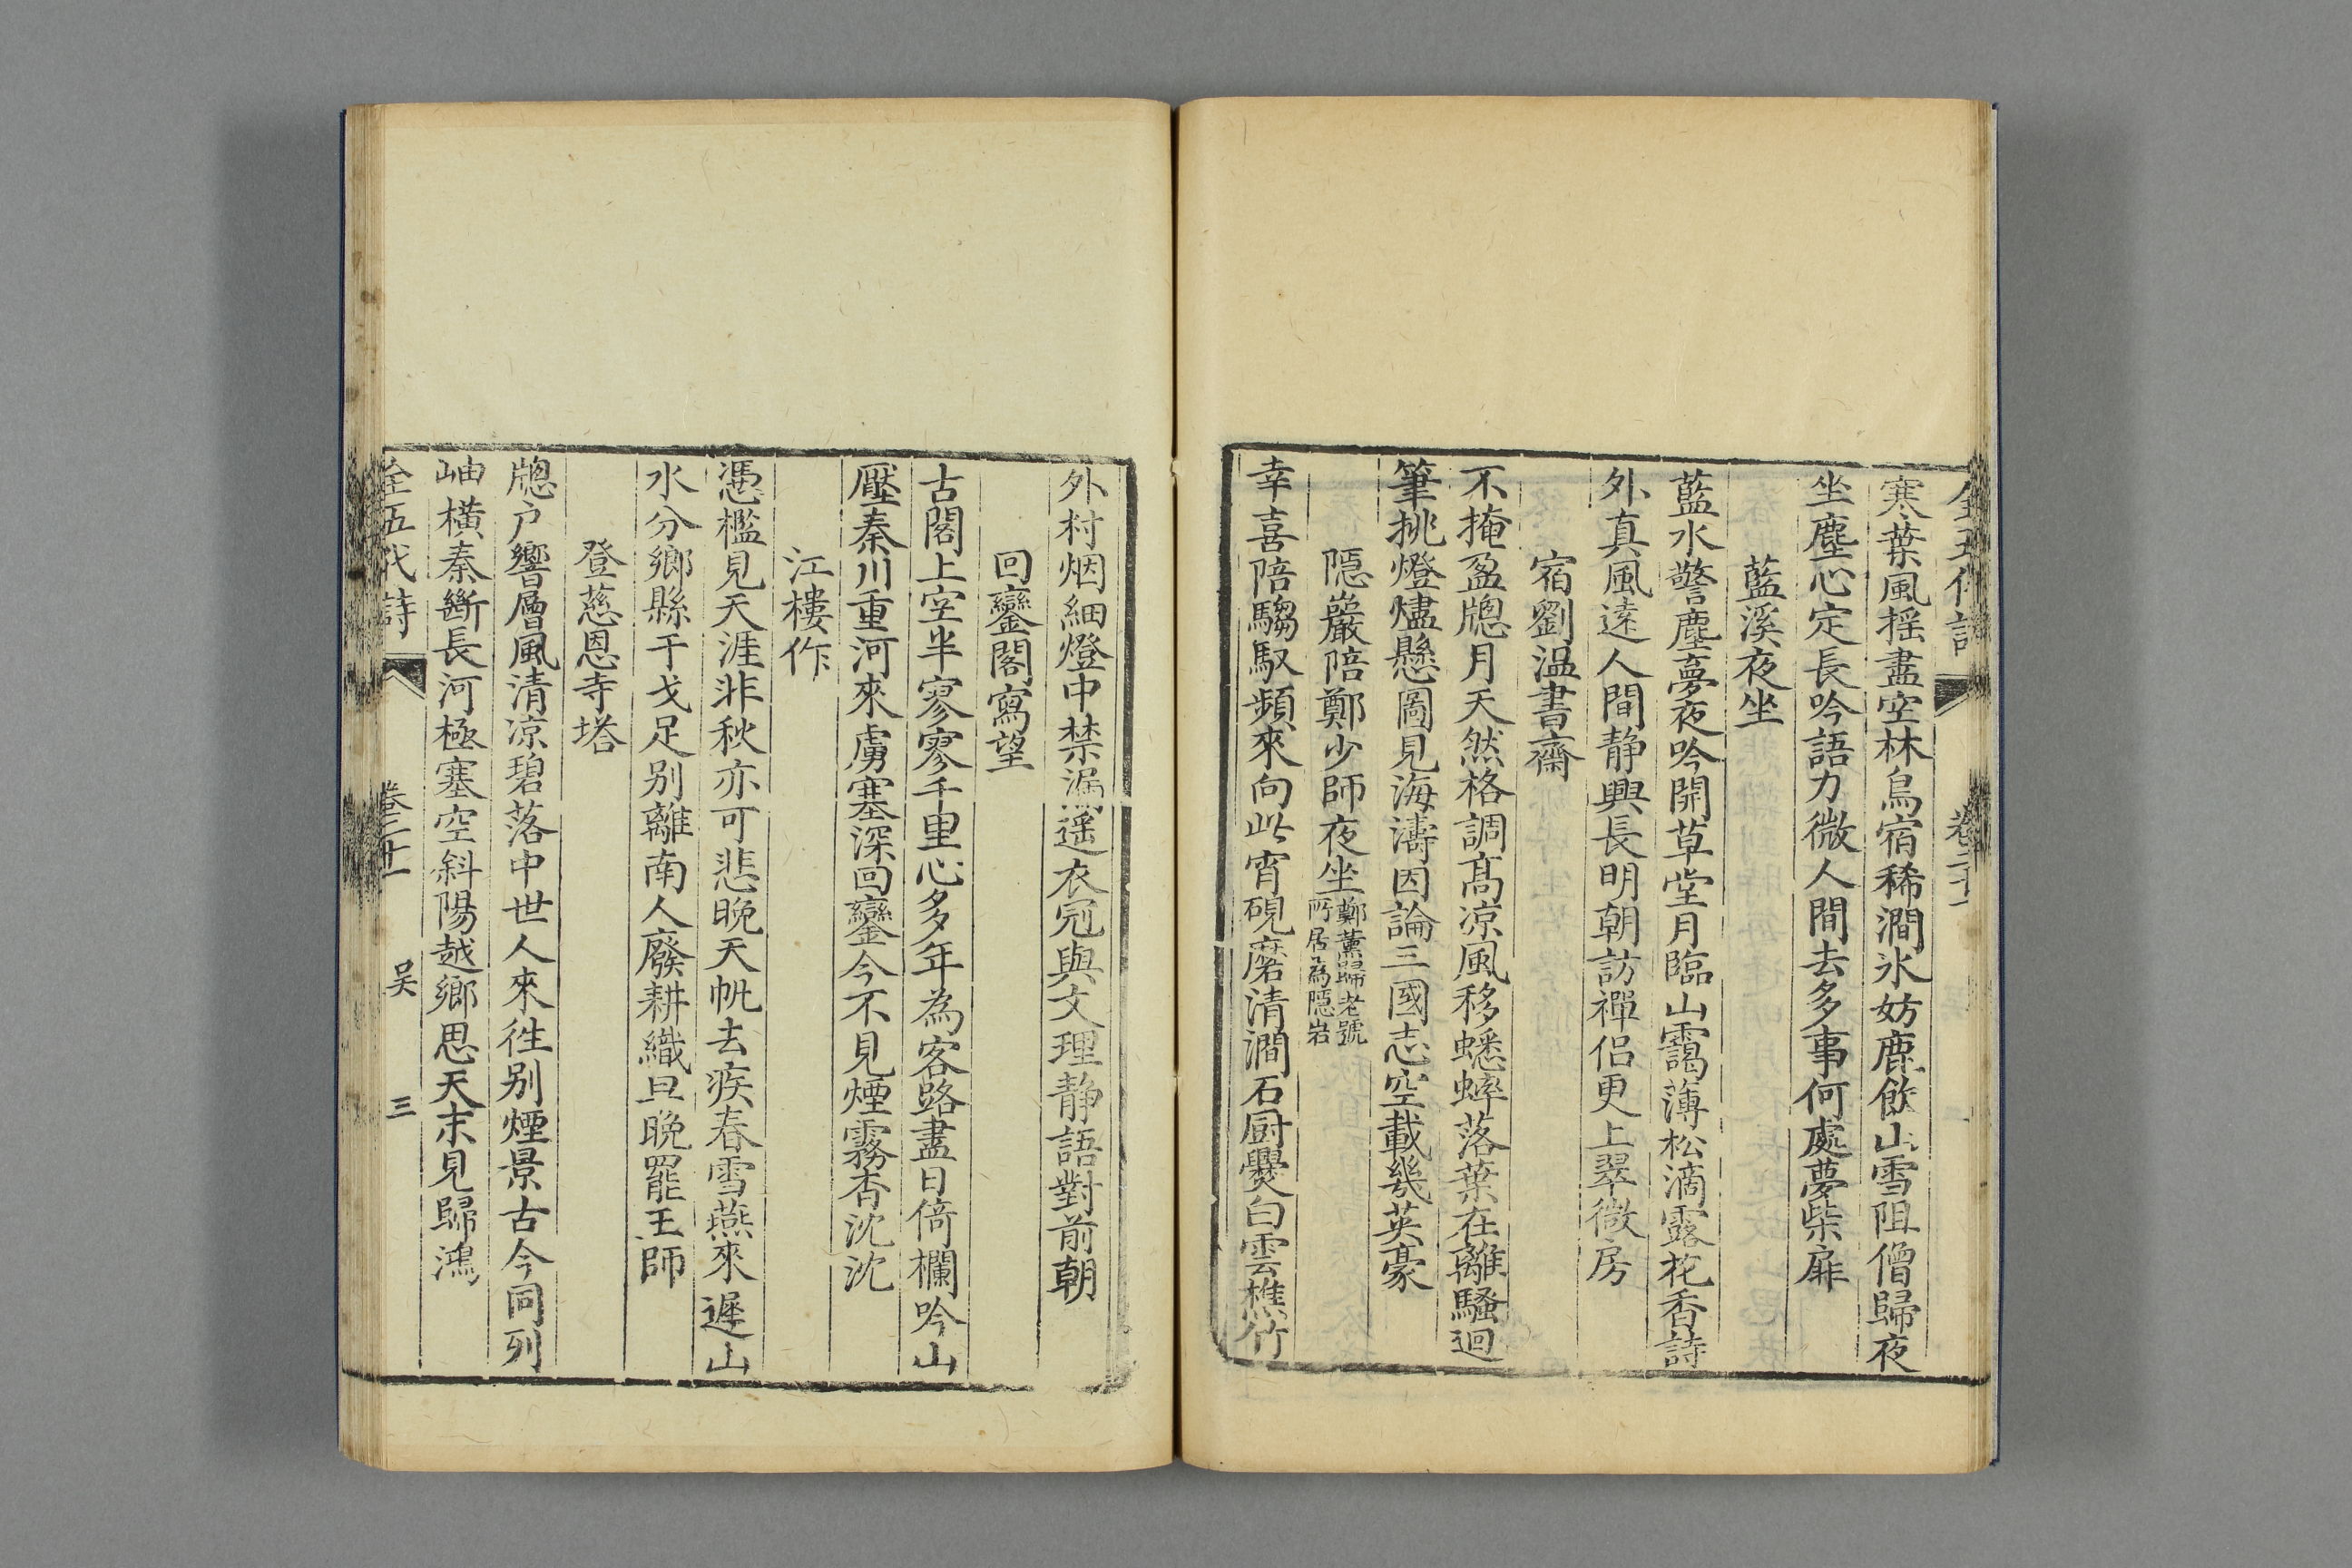 全五代詩 卷二十一
寒葉風搖盡空林鳥宿稀澗冰妨鹿飲山雪阻僧歸夜
坐塵心定長吟語力微人間去多事何處夢柴扉
藍溪夜坐
藍水警塵夢夜吟開草堂月臨山靄薄松滴露花香詩
外真風遠人間静興長明朝訪禪侣更上翠微房
宿劉温書齋
不掩盈牕月天然格調髙凉風移蟋蟀落葉在離騷迴
筆挑燈燼懸圖見海濤因論三國志空載幾英豪
隱巖陪鄭少師夜坐鄭薰歸老號所居為隱岩
幸喜陪騶馭頻來向此宵硯磨清澗石厨㸑白雲樵竹
外村烟細燈中禁漏遥衣冠與文理静語對前朝
回鑾閣寫望
古閣上空半寥寥千里心多年為客路盡日倚欄吟山
壓秦川重河來虜塞深回鑾今不見煙霧杳沈沈
江樓作
憑檻見天涯非秋亦可悲晚天帆去疾春雪燕來遲山
水分鄉縣干戈足别離南人廢耕織旦晚罷王師
登慈恩寺塔
牕户響層風清凉碧落中世人來徃别煙景古今同列
岫横秦斷長河極塞空斜陽越鄉思天末見歸鴻
全五代詩 卷二十一 吴 三